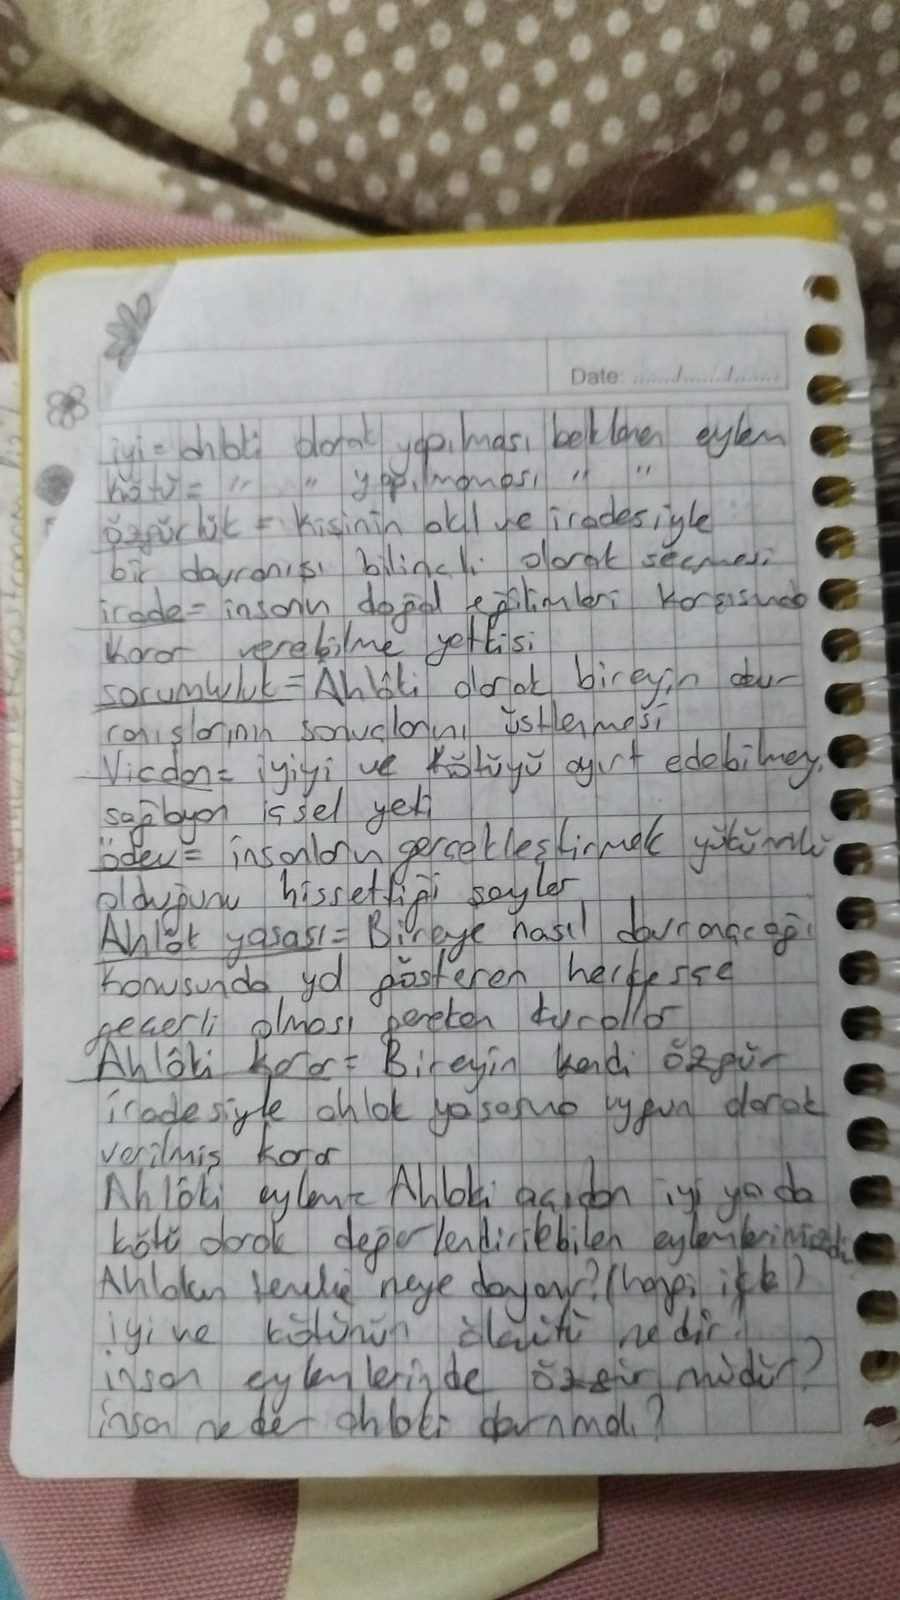 Date: ....../......./.......
iyi = ahlaki olarak yapılması beklenen eylem
kötü = " " yapılmaması " "
özgürlük = Kişinin akıl ve iradesiyle
bir davranışı bilinçli olarak seçmesi
irade = insanın doğal eğilimleri karşısında
karar verebilme yetkisi
sorumluluk = Ahlâki olarak bireyin dav-
ranışlarının sonuçlarını üstlenmesi
Vicdan = iyiyi ve kötüyü ayırt edebilmeyi
sağlayan içsel yeti
ödev = insanların gerçekleştirmek yükümlü
olduğunu hissettiği şeyler
Ahlâk yasası = Bireye nasıl davranacağı
konusunda yol gösteren herkesçe
geçerli olması gereken kurallar
Ahlâki karar = Bireyin kendi özgür
iradesiyle ahlak yasasına uygun olarak
verilmiş karar
Ahlâki eylem = Ahlaki açıdan iyi ya da
kötü olarak değerlendirilebilen
Ahlakın temeli neye dayanır? (hangi ilke)
iyi ve kötünün ölçütü nedir?
insan eylemlerinde özgür müdür?
insan neden ahlaki